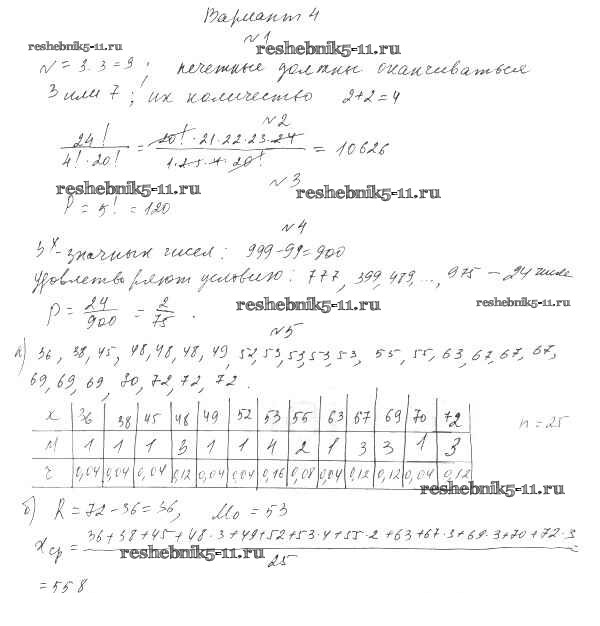 Вариант 4
№1
reshebnik5-11.ru reshebnik5-11.ru
N = 3·3=9, нечетные должны оканчиваться
3 или 7; их количество 2+2=4
№2
24! / 4!·20! = 20!·21·22·23·24 / 1·2·3·4·20! = 10626
№3
reshebnik5-11.ru reshebnik5-11.ru
P = 5! = 120
№4
3х-значных чисел: 999-99=900
удовлетворяют условию: 777, 399, 479, ..., 975 – 24 числа
P = 24/900 = 2/75.
reshebnik5-11.ru reshebnik5-11.ru
№5
а) 36, 38, 45, 48, 48, 48, 49, 52, 53, 53, 53, 53, 55, 55, 63, 67, 67, 67,
69, 69, 69, 70, 72, 72, 72.
X 36 38 45 48 49 52 53 55 63 67 69 70 72 n=25
M 1 1 1 3 1 1 4 2 1 3 3 1 3
r 0,04 0,04 0,04 0,12 0,04 0,04 0,16 0,08 0,04 0,12 0,12 0,04 0,12
reshebnik5-11.ru
б) R = 72-36=36, Mo = 53
xср = 36+38+45+48·3+49+52+53·4+55·2+63+67·3+69·3+70+72·3 / 25
reshebnik5-11.ru
= 558